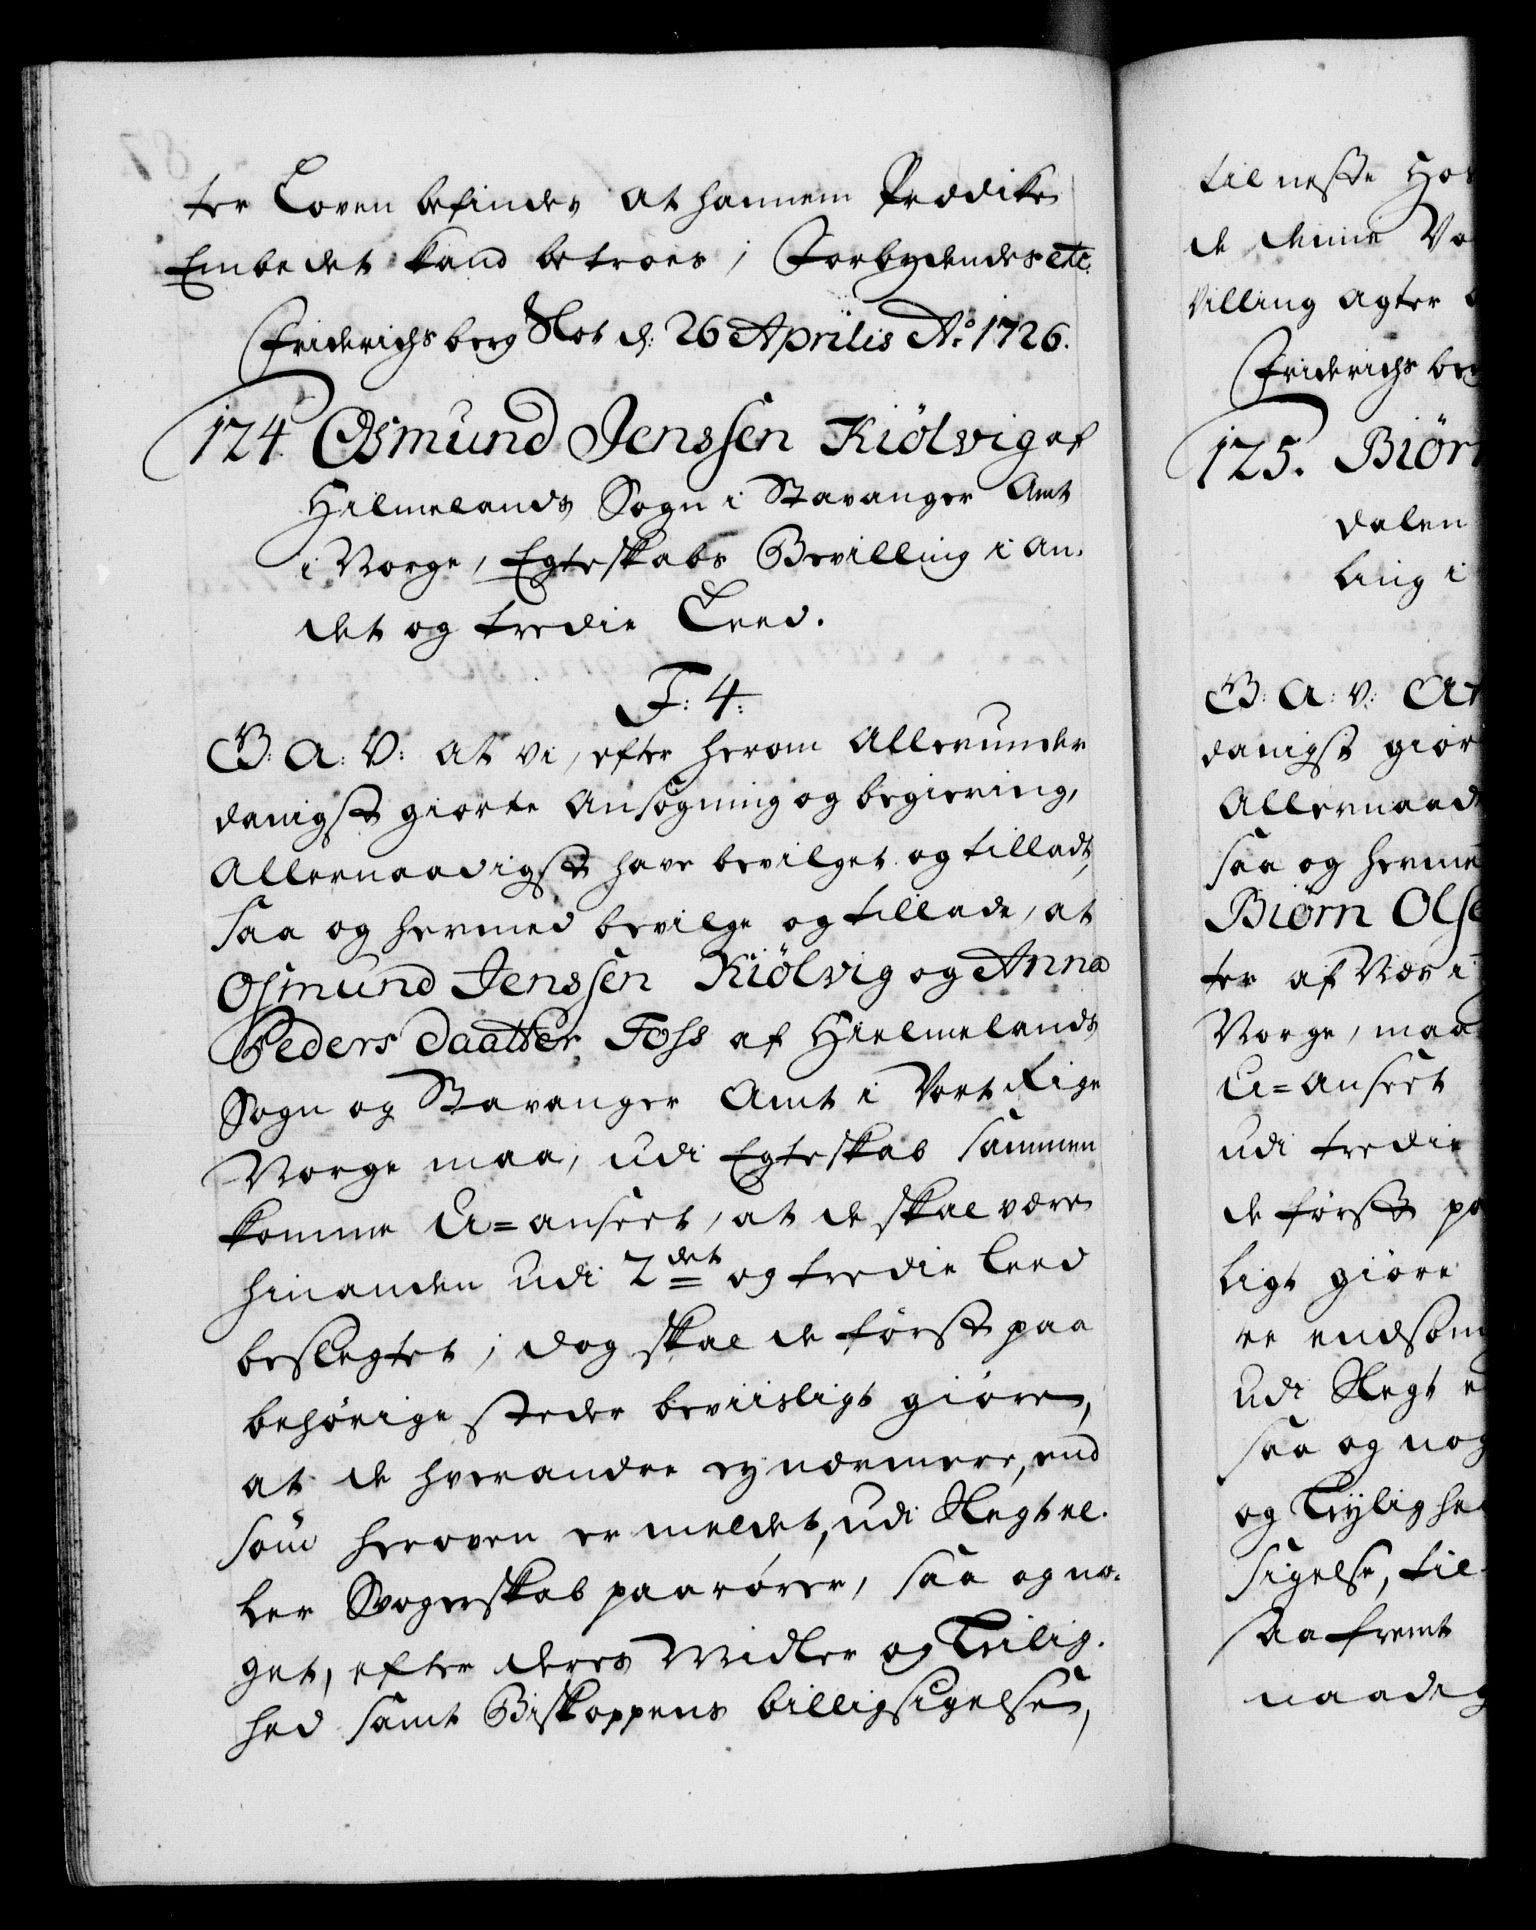 ter Loven befindes at hannem Prædike
Embedet kand betroes; Forbydendes etc.
Friderichsberg Slot d: 26 Aprilis Ao. 1726.
124. Osmund Jenssen Kiölvig af
Hilmelands Sogn i Stavanger Amt
i Norge, Egteskabs Bevilling i an-
det og tredie Leed.
F: 4:
G: A: V: at vi, efter herom Allerunder
danigst giorte Ansögning og begiering,
Allernaadigst have bevilget og tilladt,
saa og hermed bevilge og tillade, at
Osmund Jenssen Kiölvig og Anna
Peders Daatter Foss af Hielmelands
Sogn og Stavanger Amt i Vort Rige
Norge maa, udi Egteskab sammen
komme U=anseet, at de skal være
hinanden udi 2det og tredie Leed
beslegtet; dog skal de först paa
behörige steder beviisligt giöre,
at de hverandre ey nærmere, end
som heroven er meldet, udi Slegt el-
ler Svogerskab paarörer, saa og no-
get, efter deres Midler og Leilig-
hed samt Biskoppens billigsigelse,
til neste Hos
de denne Vo
villing agter
Friderichs berg
125. Biörn
dalen
ling i
G: A: V: At
danigst gior
Allernaad
saa og herme
Biörn Olse
ter af Næs i
Norge, maa
U=anseet
udi tredie
de först pa
ligt giöre
re endsom
udi Slegt e
saa og nog
og Leylighe
sigelse, til
saafremt
naadig